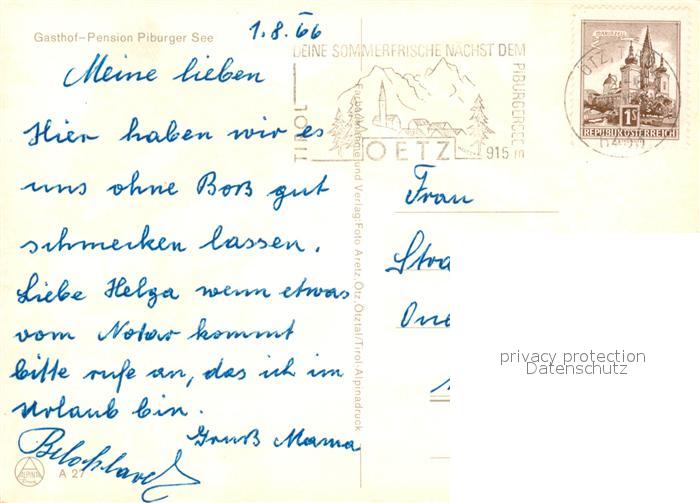 Gasthof-Pension Piburger See
1.8.66
Meine lieben
Hier haben wir es
uns ohne Boß gut
schmecken lassen.
Liebe Helga wenn etwas
vom Notar kommt
bitte rufe an, das ich im
Urlaub bin.
Gruß Mama
ALPINA
A 27
Farbaufnahme und Verlag: Foto Aretz, Ötz, Ötztal/Tirol-Alpinadruck
DEINE SOMMERFRISCHE NÄCHST DEM
PIBURGERSEE
TIROL
OETZ
915
MARIAZELL
1S
REPUBLIK ÖSTERREICH
ÖTZ, T
Frau
Stra
One
privacy protection
Datenschutz